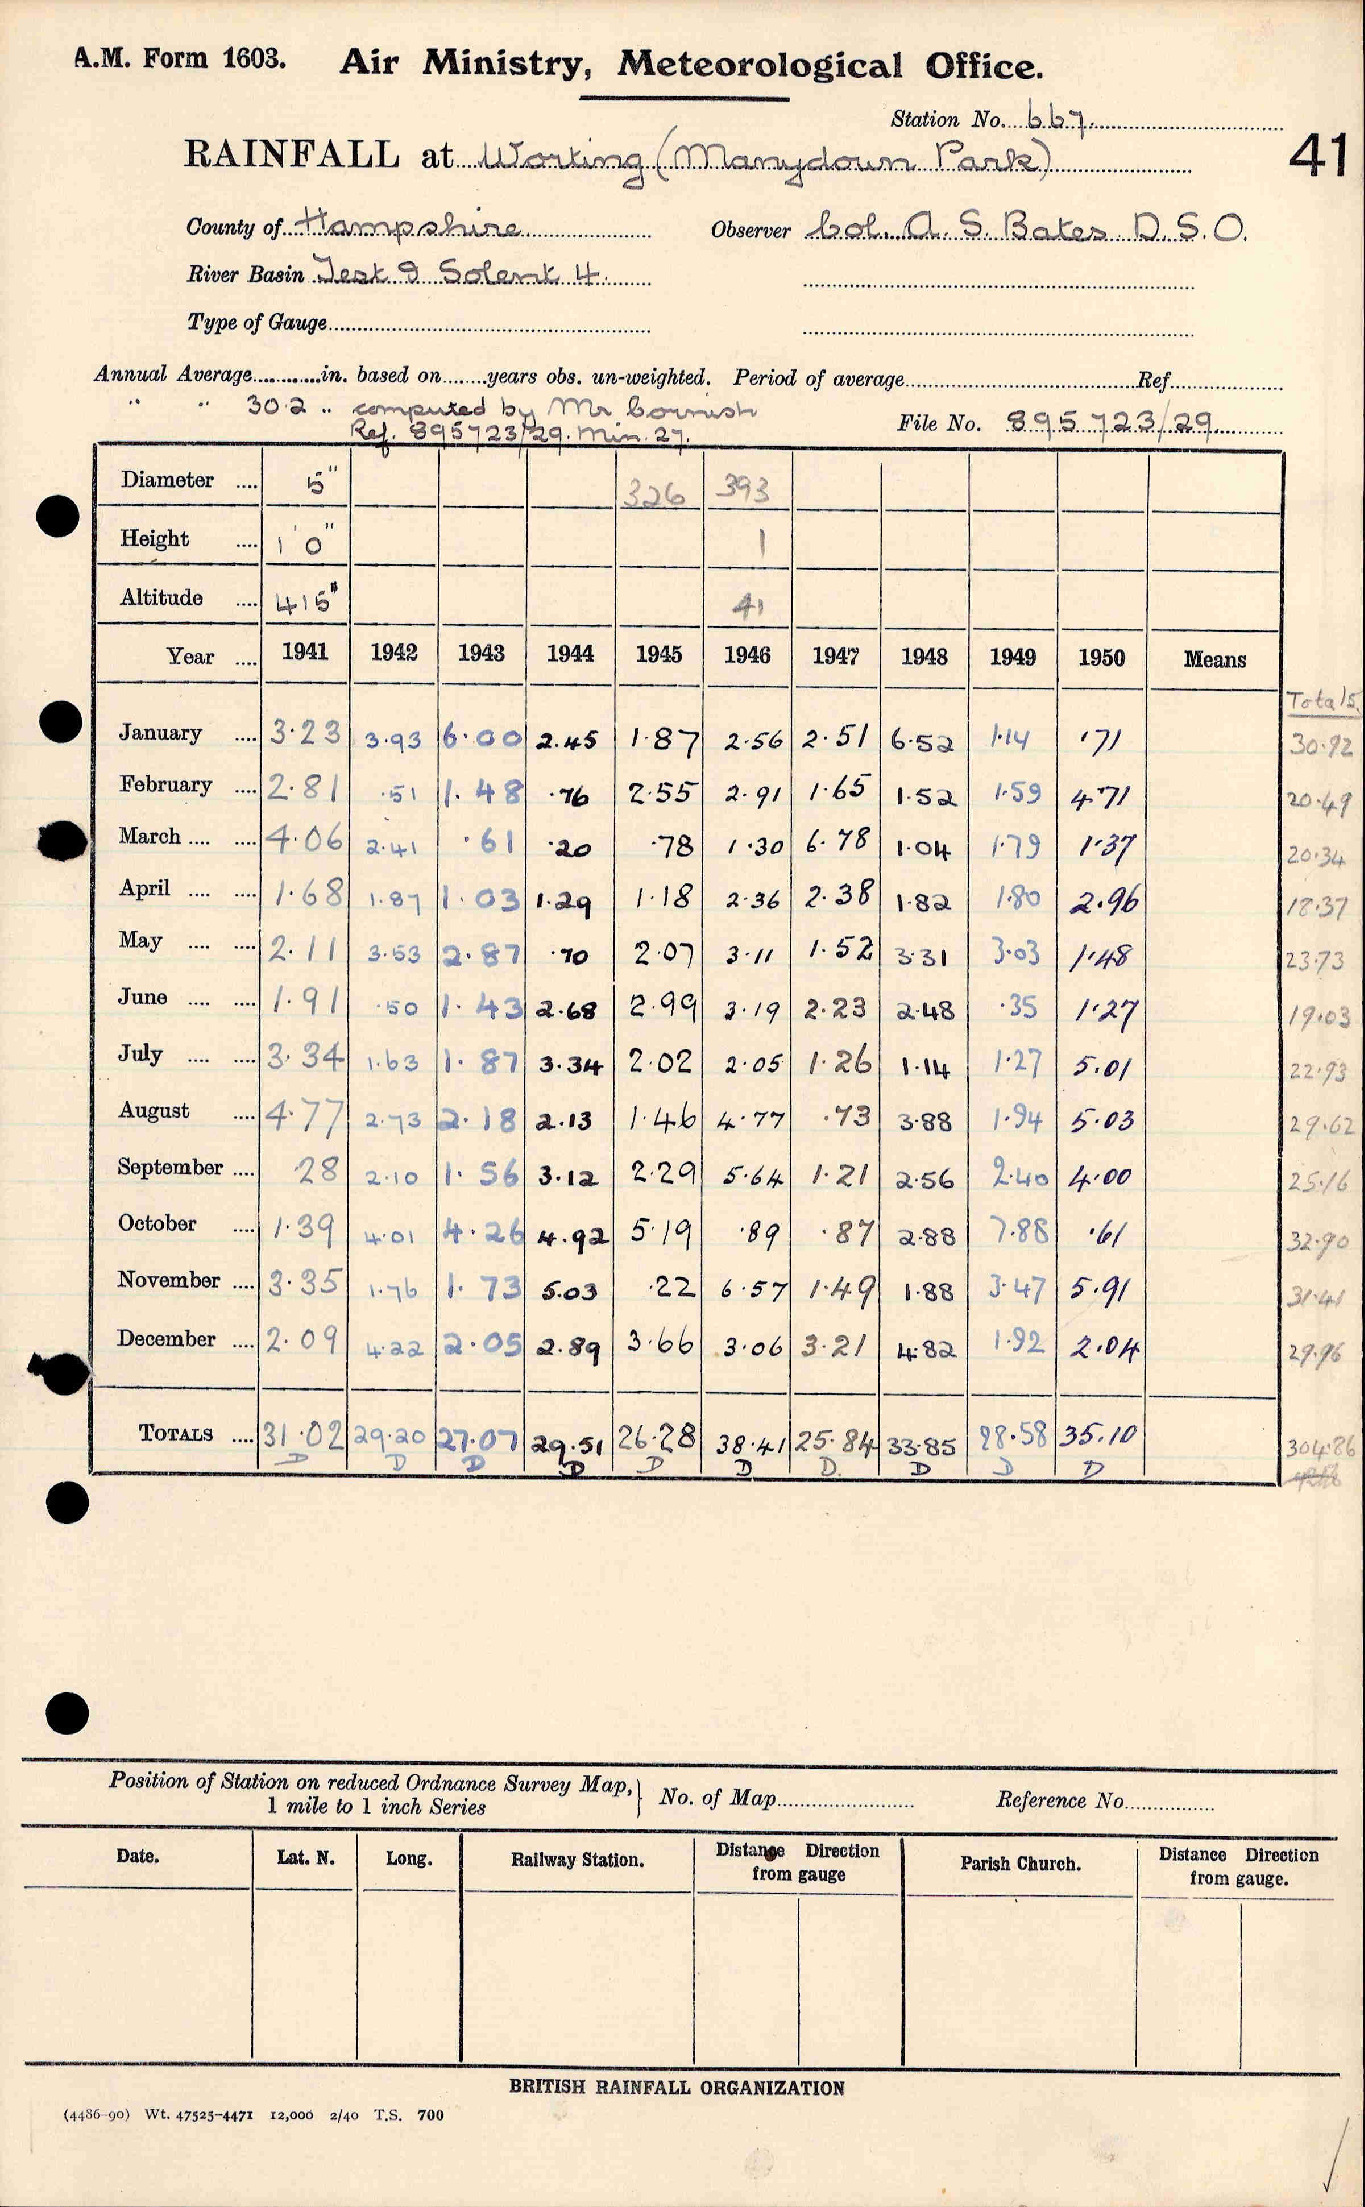 A.M. Form 1603. Air Ministry, Meteorological Office.
Station No. 667.
RAINFALL at Worting (Manydown Park)
41
County of Hampshire Observer Col. A. S. Bates D.S.O.
River Basin Test & Solent 4
Type of Gauge
Annual Average in. based on years obs. un-weighted. Period of average Ref.
" " 30.2 .. computed by Mr Cornish
Ref. 895723/29. Min. 27. File No. 895723/29
Diameter .... 5" 326 393
Height .... 1' 0" 1
Altitude .... 415" 41
Year .... 1941 1942 1943 1944 1945 1946 1947 1948 1949 1950 Means
Totals
January .... 3.23 3.93 6.00 2.45 1.87 2.56 2.51 6.52 1.14 .71 30.92
February .... 2.81 .51 1.48 .76 2.55 2.91 1.65 1.52 1.59 4.71 20.49
March .... .... 4.06 2.41 .61 .20 .78 1.30 6.78 1.04 1.79 1.37 20.34
April .... .... 1.68 1.87 1.03 1.29 1.18 2.36 2.38 1.82 1.80 2.96 18.37
May .... .... 2.11 3.53 2.87 .70 2.07 3.11 1.52 3.31 3.03 1.48 23.73
June .... .... 1.91 .50 1.43 2.68 2.99 3.19 2.23 2.48 .35 1.27 19.03
July .... .... 3.34 1.63 1.87 3.34 2.02 2.05 1.26 1.14 1.27 5.01 22.93
August .... 4.77 2.73 2.18 2.13 1.46 4.77 .73 3.88 1.94 5.03 29.62
September .... .28 2.10 1.56 3.12 2.29 5.64 1.21 2.56 2.40 4.00 25.16
October .... 1.39 4.01 4.26 4.92 5.19 .89 .87 2.88 7.88 .61 32.90
November .... 3.35 1.76 1.73 5.03 .22 6.57 1.49 1.88 3.47 5.91 31.41
December .... 2.09 4.22 2.05 2.89 3.66 3.06 3.21 4.82 1.92 2.04 29.96
TOTALS .... 31.02 29.20 27.07 29.51 26.28 38.41 25.84 33.85 28.58 35.10 304.86
D D D D D D D. D D D
Position of Station on reduced Ordnance Survey Map, } No. of Map Reference No.
1 mile to 1 inch Series
Date. Lat. N. Long. Railway Station. Distance Direction from gauge Parish Church. Distance Direction from gauge.
BRITISH RAINFALL ORGANIZATION
(4486-90) Wt. 47525-4471 12,000 2/40 T.S. 700